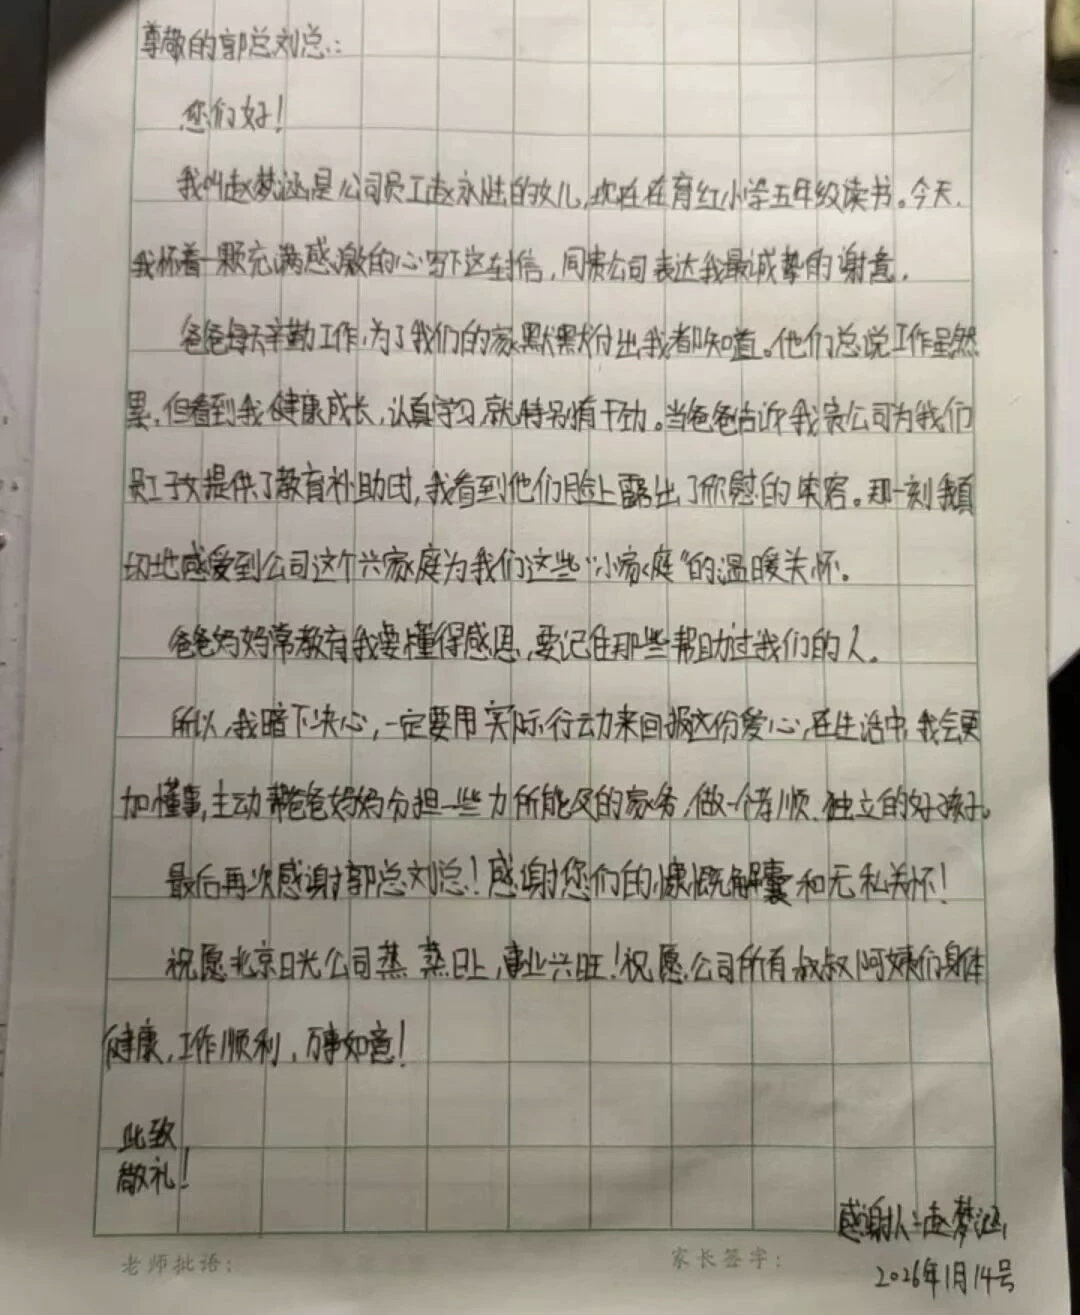 尊敬的郭总刘总:
您们好!
我叫赵梦涵是公司员工赵永胜的女儿,现在在育红小学五年级读书。今天,
我怀着一颗充满感激的心写下这封信,向贵公司表达我最诚挚的谢意。
爸爸每天辛勤工作,为了我们的家默默付出,我都知道。他们总说工作虽然
累,但看到我健康成长,认真学习,就特别有干劲。当爸爸告诉我家公司为我们
员工子女提供了教育补助时,我看到他们脸上露出了欣慰的笑容。那一刻我真
切地感受到公司这个大家庭为我们这些“小家庭”的温暖关怀。
爸爸妈妈常教育我要懂得感恩,要记住那些帮助过我们的人。
所以,我暗下决心,一定要用实际行动来回报这份爱心,在生活中,我会更
加懂事,主动帮爸爸妈妈分担一些力所能及的家务,做一个孝顺、独立的好孩子。
最后再次感谢郭总刘总!感谢您们的慷慨解囊和无私关怀!
祝愿北京日光公司蒸蒸日上,事业兴旺!祝愿公司所有叔叔阿姨们身体
健康,工作顺利,万事如意!
此致
敬礼!
感谢人:赵梦涵
2026年1月14号
老师批语:
家长签字: